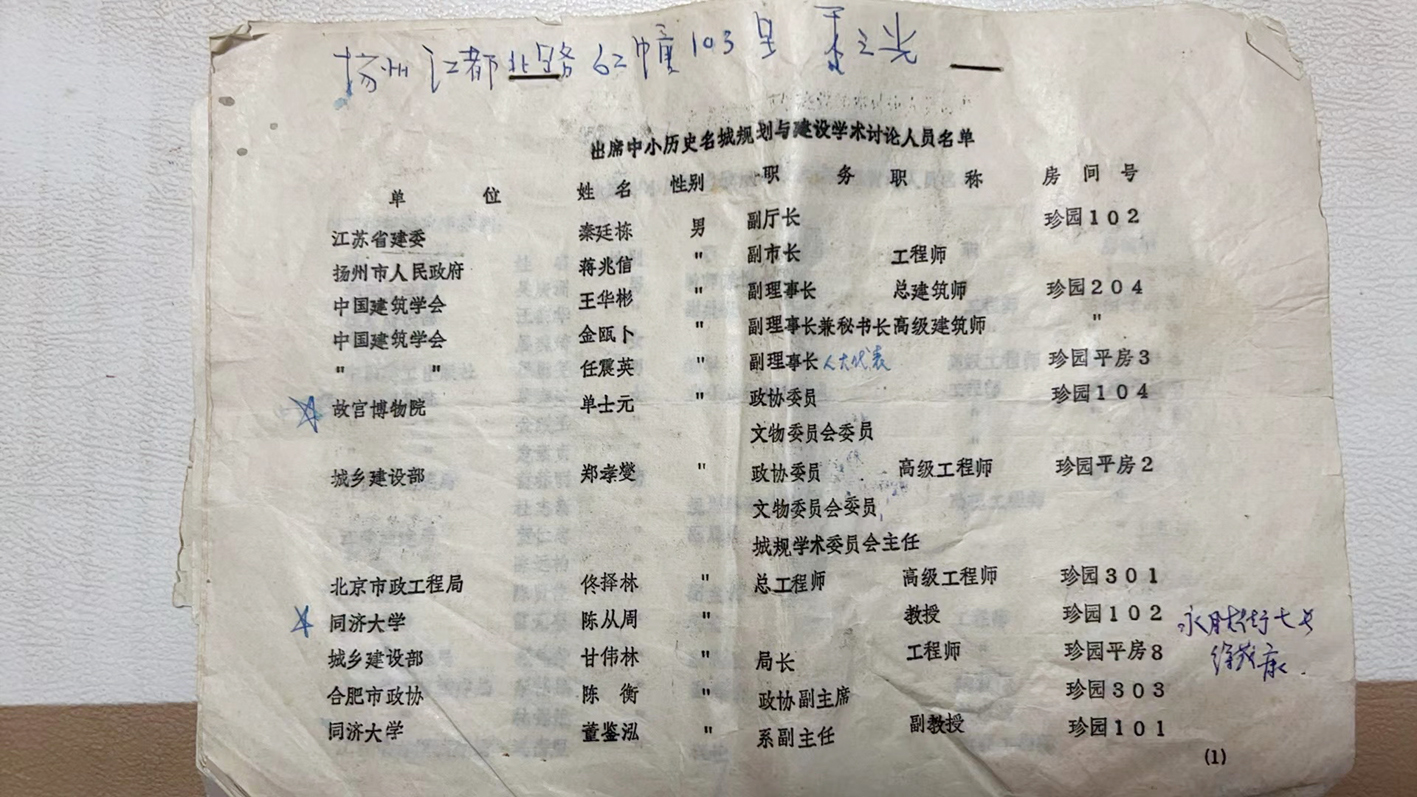 扬州江都北路62幢103室 之光
出席中小历史名城规划与建设学术讨论人员名单
单 位 姓 名 性别 职 务 职 称 房 间 号
江苏省建委 秦廷栋 男 副厅长 珍园102
扬州市人民政府 蒋兆信 " 副市长 工程师
中国建筑学会 王华彬 " 副理事长 总建筑师 珍园204
中国建筑学会 金瓯卜 " 副理事长兼秘书长 高级建筑师 "
" " 任震英 " 副理事长 人大代表 珍园平房3
故宫博物院 单士元 " 政协委员 珍园104
文物委员会委员
城乡建设部 郑孝燮 " 政协委员 高级工程师 珍园平房2
文物委员会委员
城规学术委员会主任
北京市政工程局 佟择林 " 总工程师 高级工程师 珍园301
同济大学 陈从周 " 教授 珍园102
城乡建设部 甘伟林 " 局长 工程师 珍园平房8
合肥市政协 陈 衡 " 政协副主席 珍园303
同济大学 董鉴泓 " 系副主任 副教授 珍园101
(1)